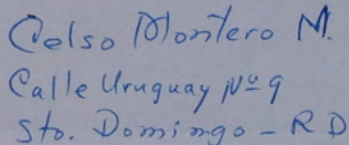 Celso Montero M.
Calle Uruguay Nº 9
Sto. Domingo - R D